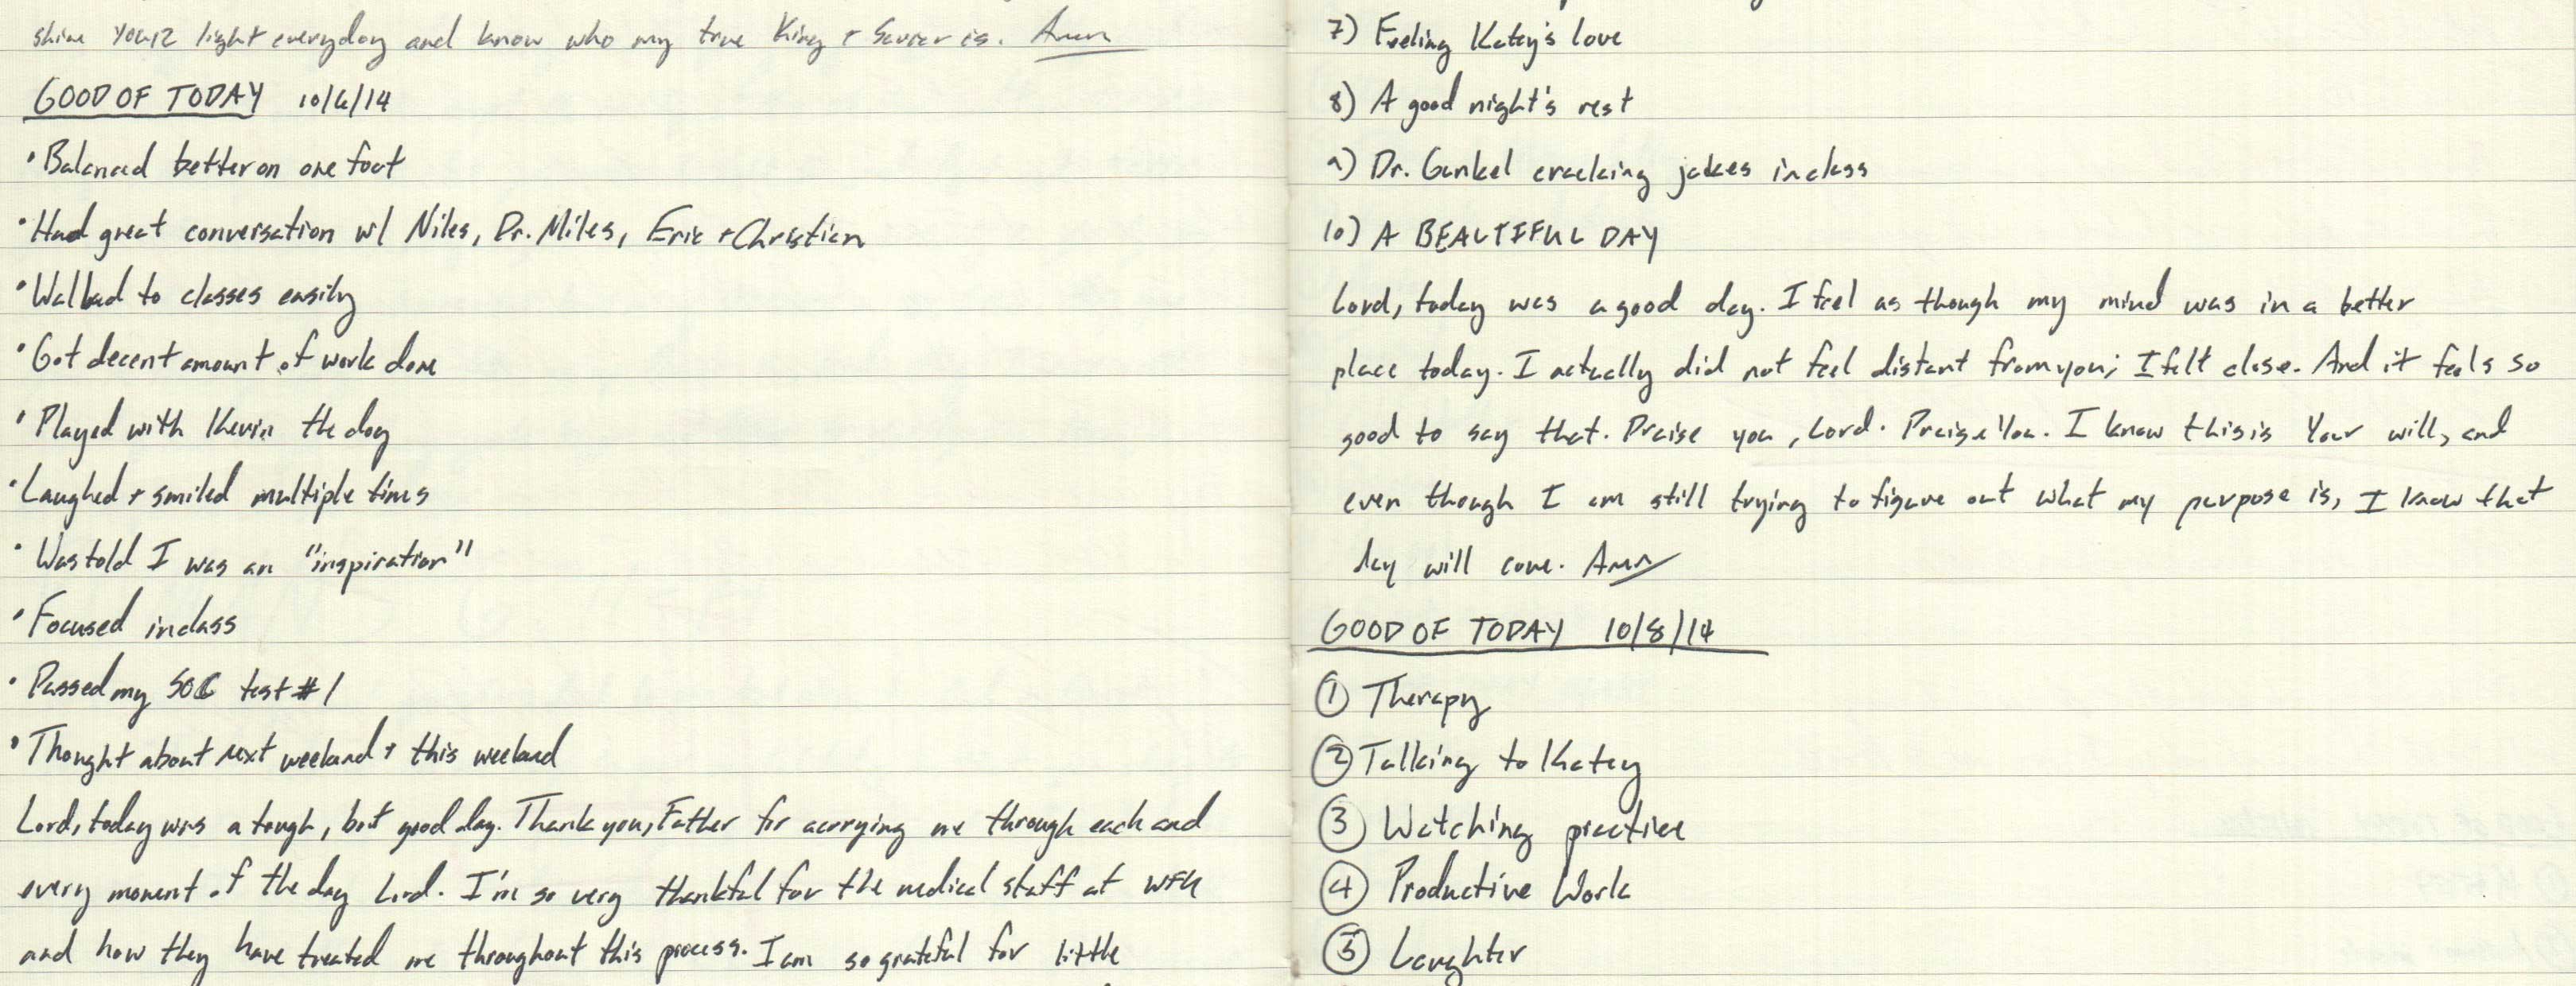 shine your light everyday and know who my true King + Savior is. Amen
GOOD OF TODAY 10/6/14
• Balanced better on one foot
• Had great conversation w/ Niles, Dr. Miles, Eric + Christian
• Walked to classes easily
• Got decent amount of work done
• Played with Kevin the dog
• Laughed + smiled multiple times
• Was told I was an "inspiration"
• Focused in class
• Passed my SOC test #1
• Thought about next weekend + this weekend
Lord, today was a tough, but good day. Thank you, Father for carrying me through each and
every moment of the day Lord. I'm so very thankful for the medical staff at WFU
and how they have treated me throughout this process. I am so grateful for little
7) Feeling Katey's love
8) A good night's rest
9) Dr. Gunkel cracking jokes in class
10) A BEAUTIFUL DAY
Lord, today was a good day. I feel as though my mind was in a better
place today. I actually did not feel distant from you; I felt close. And it feels so
good to say that. Praise you, Lord. Praise You. I know this is Your will, and
even though I am still trying to figure out what my purpose is, I know that
day will come. Amen
GOOD OF TODAY 10/8/14
① Therapy
② Talking to Katey
③ Watching practice
④ Productive Work
⑤ Laughter